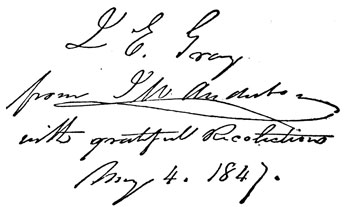 J E. Gray
from J W Audubon
with grateful Recolections
May 4. 1847.